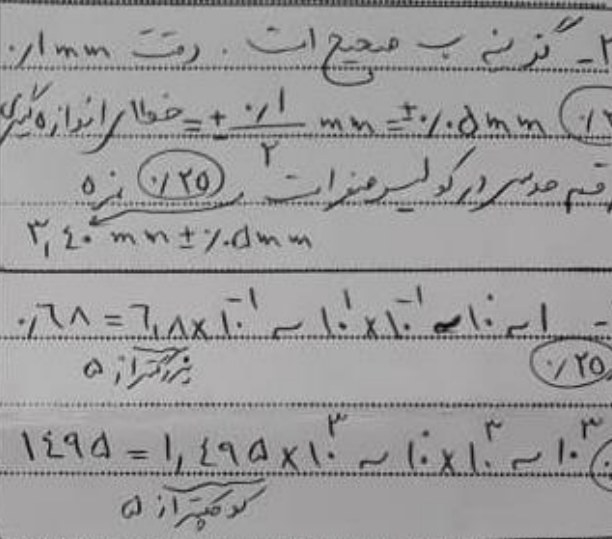 ۲- گزینه ب صحیح است. دقت ۰/۱ mm
خطای اندازه گیری = ± ۰/۱ / ۲ mm = ± ۰/۰۵ mm
رقم حدسی در کولیس صفر است ۰/۲۵ نمره
۳,۴۰ mm ± ۰/۰۵ mm
۰/۶۸ = ۶,۸×۱۰^-۱ ~ ۱۰^۱×۱۰^-۱ ~ ۱۰^۰ ~ ۱ -
بزرگتر از ۵ ۰/۲۵
۱۴۹۵ = ۱,۴۹۵×۱۰^۳ ~ ۱۰^۰×۱۰^۳ ~ ۱۰^۳
کوچکتر از ۵